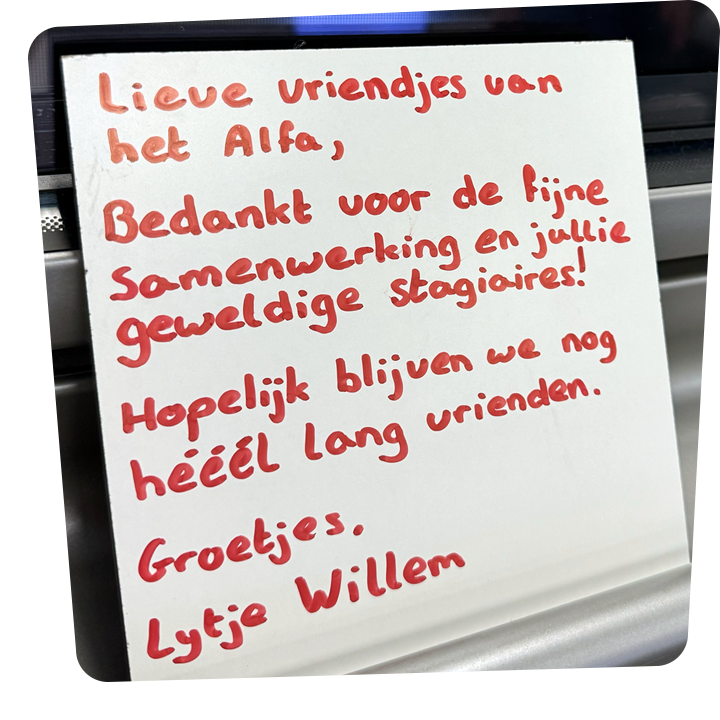 Lieve vriendjes van
het Alfa,
Bedankt voor de fijne
samenwerking en jullie
geweldige stagiaires!
Hopelijk blijven we nog
hééél lang vrienden.
Groetjes,
Lytje Willem